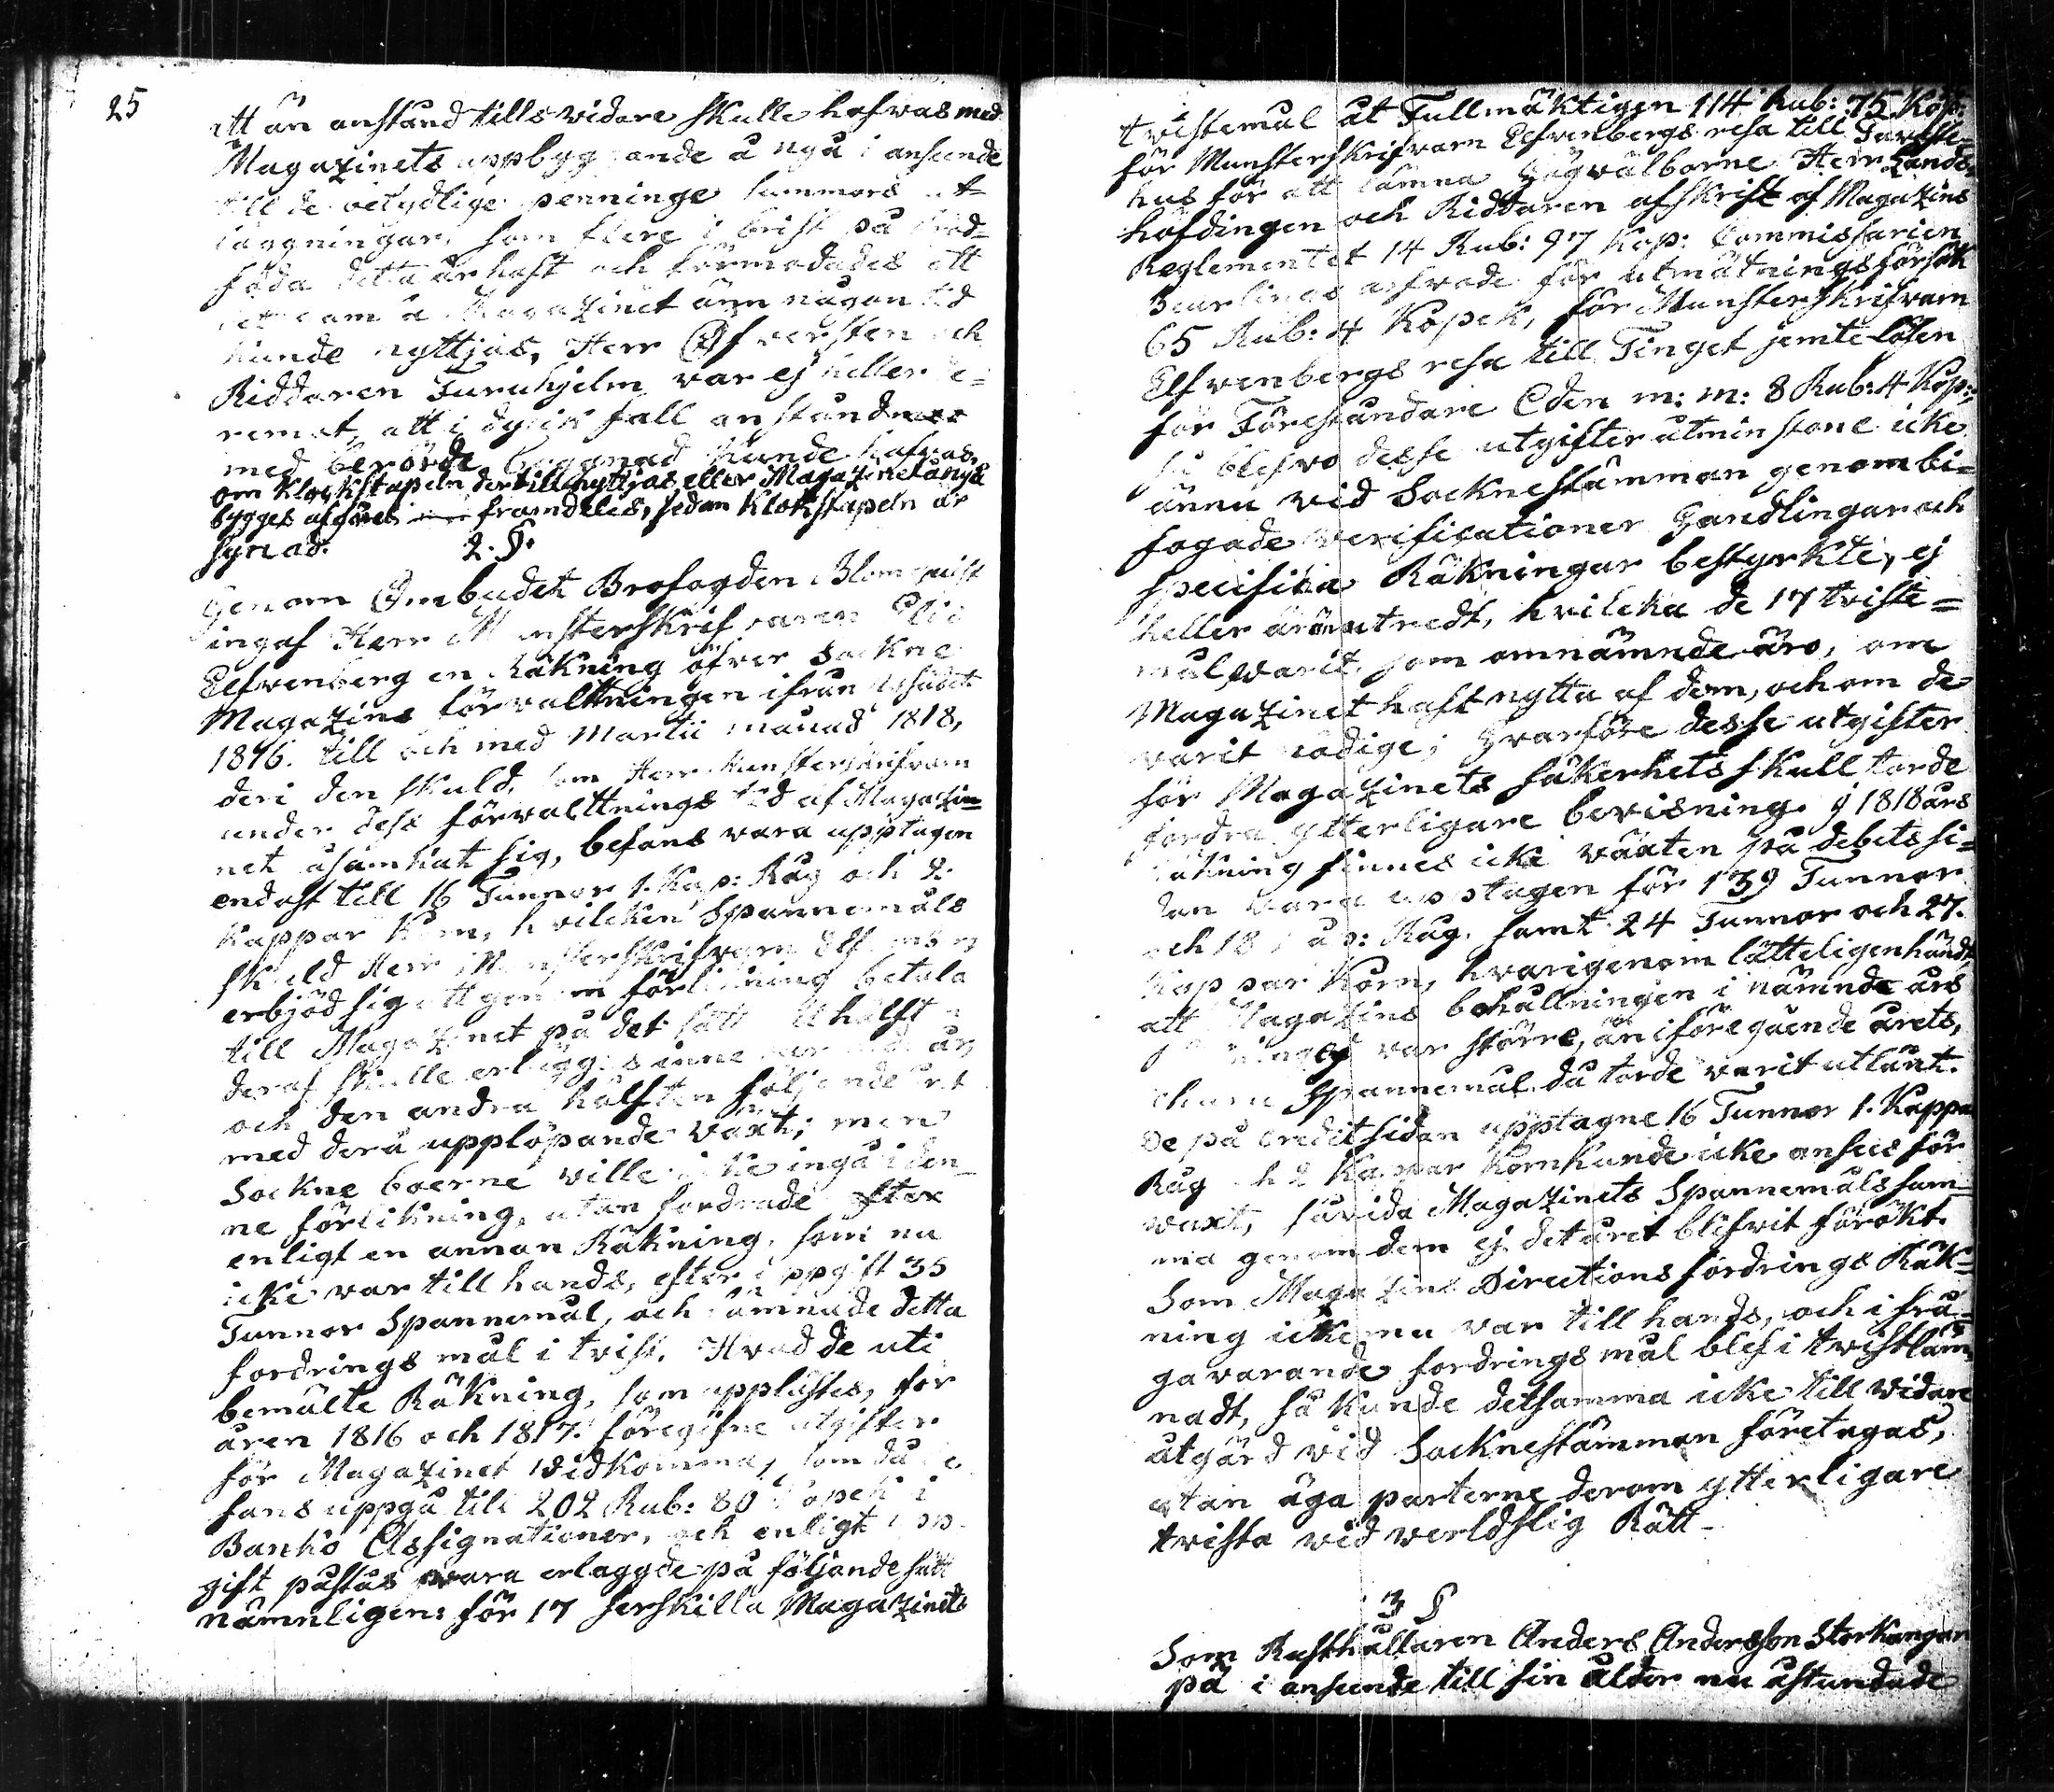 25
att än anstånd tills vidare skulle hafvas med
Magazinets uppbyggande å nya i anseende
till de betydlige penninge summors ut-
läggningar, som flere i brist på
föda detta år haft och förmodades att
Magazinet änn någon tid
kunde nyttjas, Herr Öfversten och
Riddaren Furuhjelm var ej heller de=
remot, att i dylik fall anstånd
med berörde byggnad kunde hafvas,
om Klockstapeln dertill nyttjas eller Magazinet å nya
bygges afgöres framdeles, sedan Klokstapeln är
synad.
2. §.
Genom Ombudet Brofogden Blomquist
ingaf Herr Munsterskrifvaren
Elfvenberg en Räkning öfver Sockne
Magazins förvaltningen ifrån
1816. till och med Martii månad 1818,
deri den skuld, som Herr Munsterskrifvaren
under dess förvalttnings tid af Magazi=
net åsamkat sig, befans vara upptagen
endast till 16 Tunnor 1. Kap: Råg och 2.
Kappar Korn, hvilken Spannemåls
skuld Herr Munsterskrifvaren Elfvenberg
erbjöd sig att genom förlikning betala
till Magazinet på det sätt at hälften
deraf skulle erläggas innevarande år
och den andra hälften följande året
med derå upplöpande växt; men
Sockne boerne ville icke ingå i den-
ne förlikning, utan fordrade efter
enligt en annan Räkning, som nu
icke var till hands, efter uppgift 35
Tunnor Spannemål, och lämnade detta
fordrings mål i tvist. Hvad de uti
bemälte Räkning, som upplästes, för
åren 1816 och 1817. föregifne utgifter
för Magazinet vidkomma, som
fans uppgå till 202 Rub: 80 Kopek i
Banko Assignationer, och enligt upp-
gift påstås vara erlaggde på följande sätt
nämnligen: för 17 serskilla Magazinets
tvistemål åt Fullmäktigen 114 Rub: 75 Kop:
för Munsterskrifvarn Elfvenbergs resa till Tavaste-
hus för att lämna Högvälborne Herr Lands-
höfdingen och Riddaren afskrift af Magazins
Reglementet 14 Rub: 97 Kop: Commissarien
arfvode för utmätningsförsök
65 Rub: 4 Kopek, för Munsterskrifvarn
Elfvenbergs resa till Tinget jemte lösen
för Föreståndare Eden m: m: 8 Rub: 4 Kop:;
så blefvo desse utgifter åtminstone icke
ännu vid Socknestämman genom bi=
fogade verificationer Handlingar och
specifika Räkningar bestyrkte, ej
heller är utredt, hvilcka de 17 tviste=
mål varit, som omnämnde äro, om
Magazinet haft nytta af dem, och om de
varit nödige; Hvarföre desse utgifter
för Magazinets säkerhets skull torde
fordra ytterligare bevisning. I 1818 års
räkning finnes icke växten på debets si=
dan vara upptagen för 139 Tunnor
och 18 Kap: Råg, samt 24 Tunnor och 27.
Kappar Korn, hvarigenom lätteligen händt,
att Magazins behållningen i nämnde års
var större, än iföregående årets,
ehuru Spannemål då torde varit utlånt.
De på credit sidan upptagne 16 Tunnor 1. Kappa
Råg och 2 Kappar Korn kunde icke anses för
växt, såvida Magazinets Spannemåls sum-
ma genom dem ej det året blifvit förökt.
Som Magazins Directions fordrings Räk=
ning icke nu var till hands, och i frå=
gavarande fordrings mål blef i tvist läm-
nadt, så kunde detsamma icke till vidare
åtgärd vid Socknestämman företagas,
utan äga parterne derom ytterligare
tvista vid verldslig Rätt-
3 §
Som Rusthållaren Anders Andersson Storkangan
på i anseende till sin ålder nu åstundade